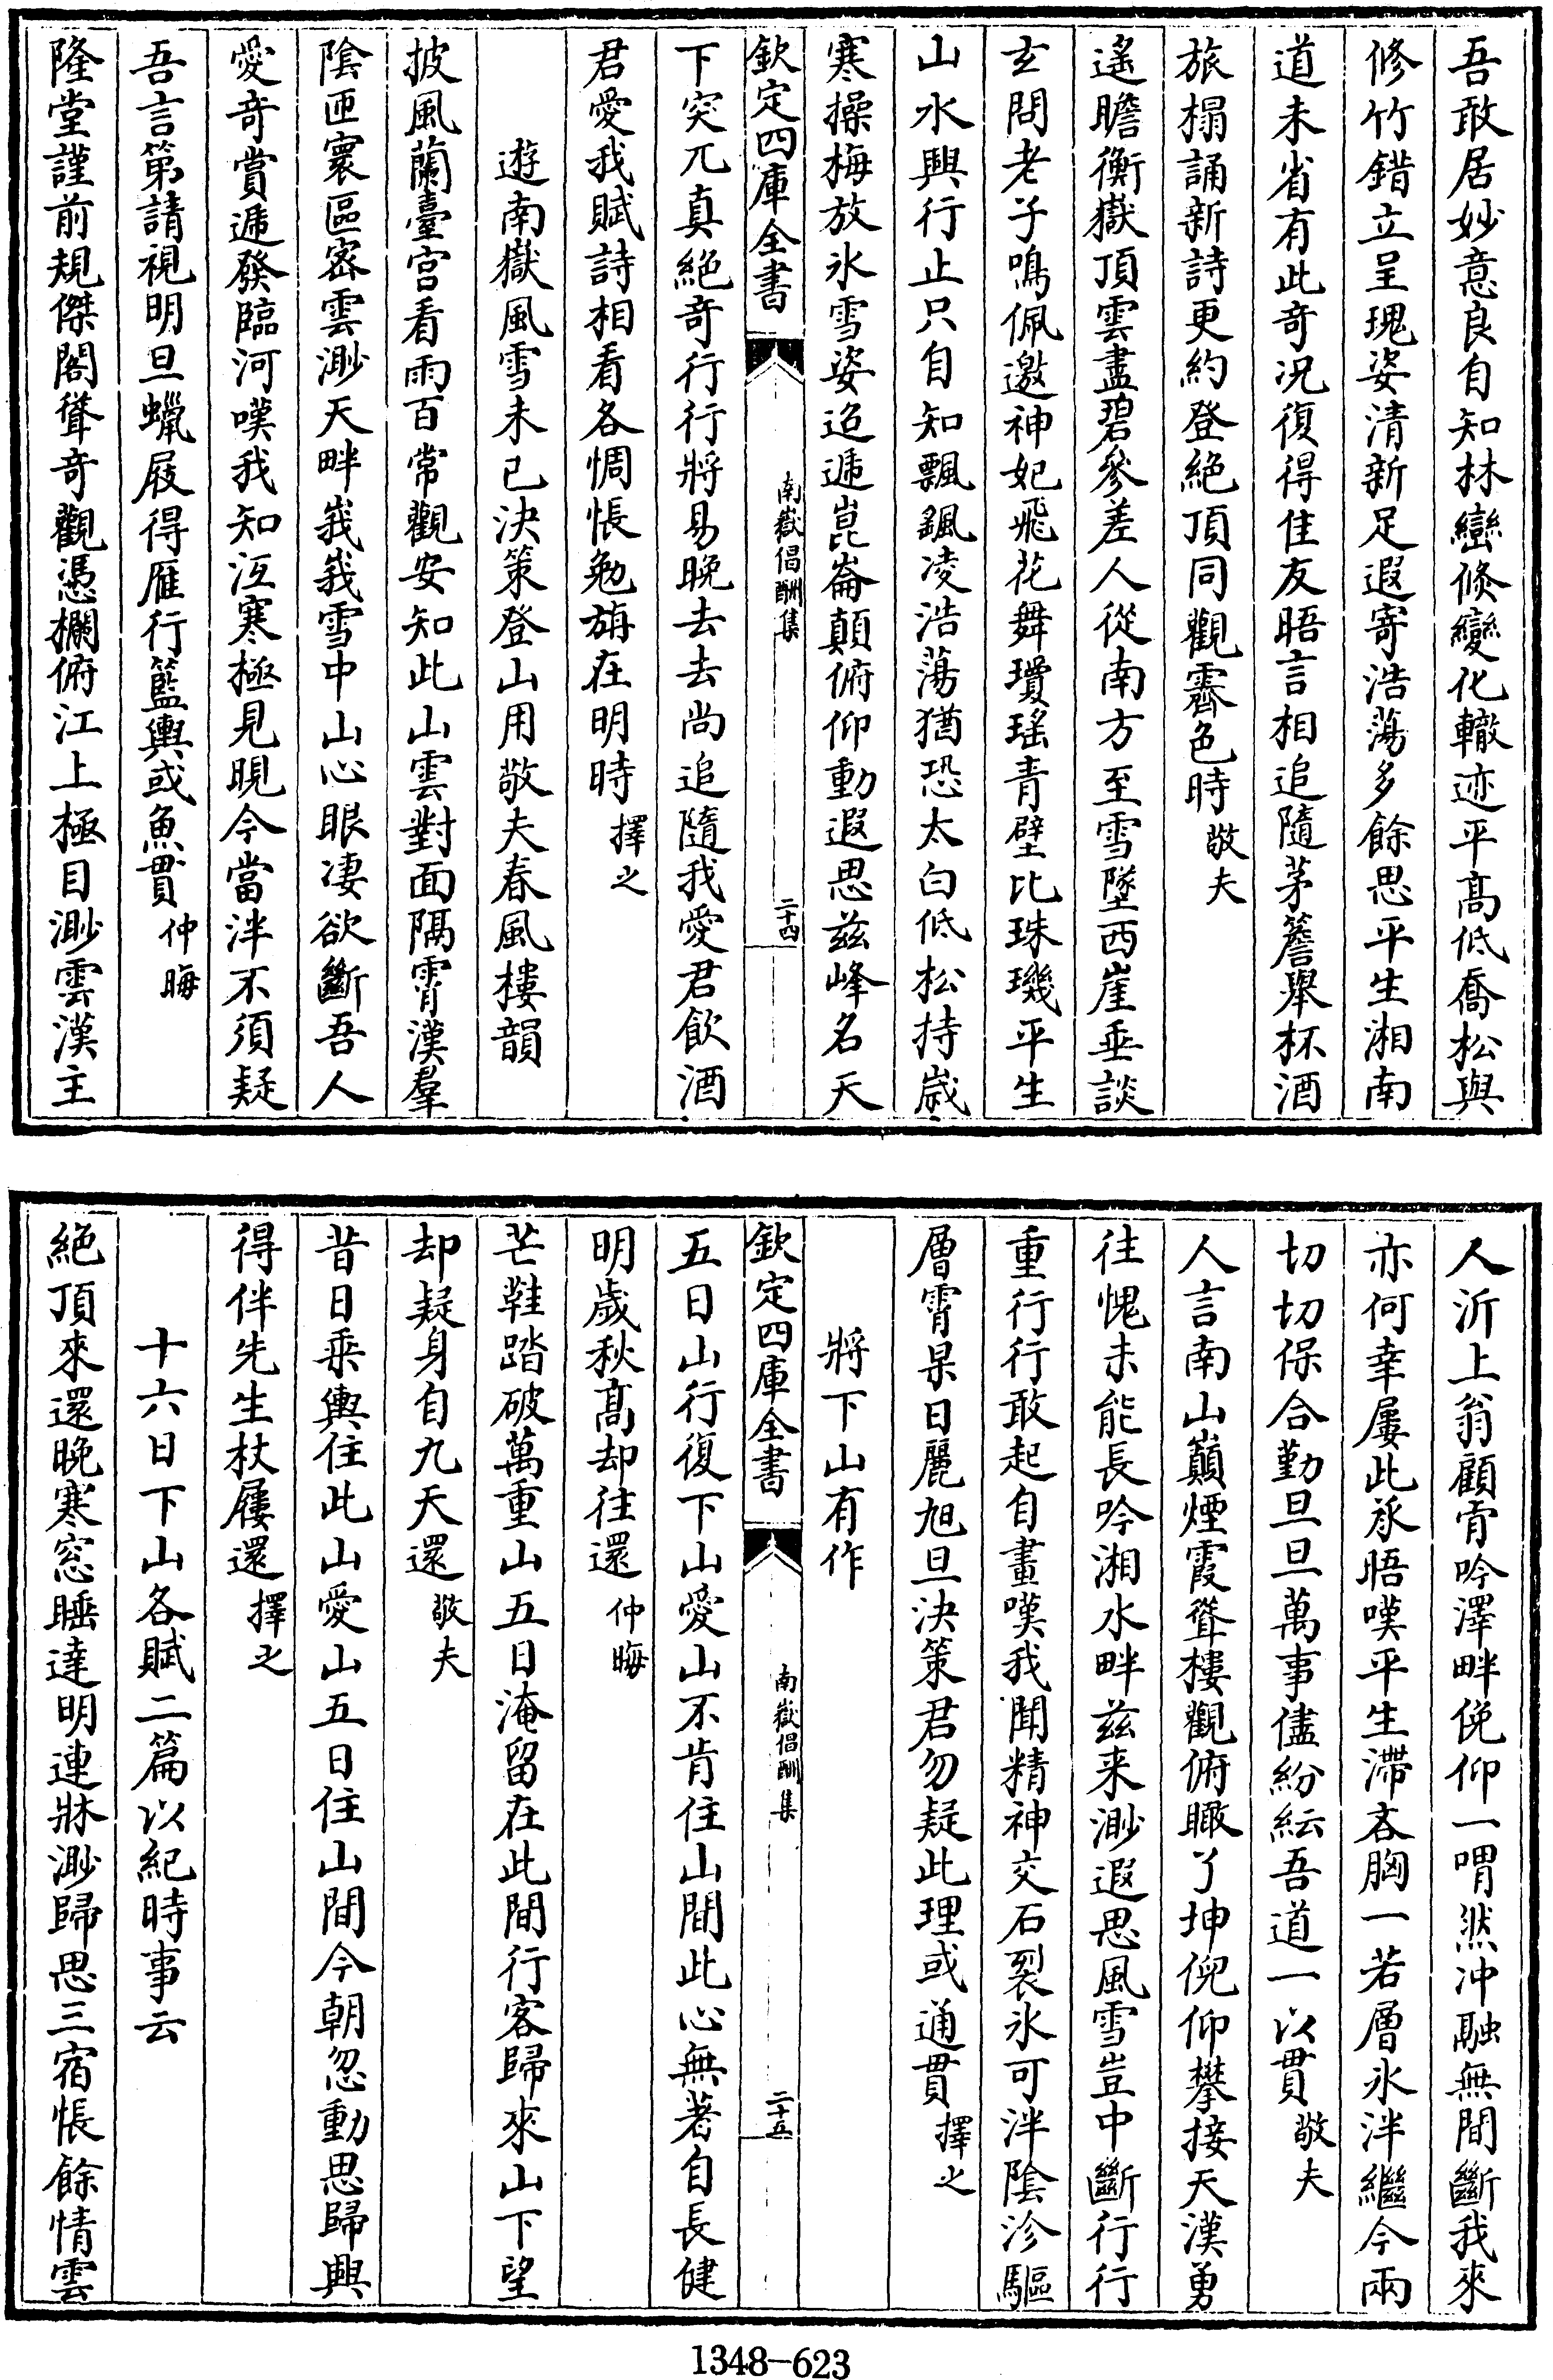 吾敢居妙意良自知林巒倐變化轍迹平髙低喬松與
修竹錯立呈瑰姿清新足遐寄浩蕩多餘思平生湘南
道未省有此奇况復得佳友晤言相追隨茅簷舉杯酒
旅榻誦新詩更約登絶頂同觀霽色時敬夫
遙瞻衡嶽頂雲盡碧參差人從南方至雪墜西崖垂談
玄問老子鳴佩邀神妃飛花舞瓊瑤青壁比珠璣平生
山水興行止只自知飄飄凌浩蕩猶恐太白低松持歳
寒操梅放氷雪姿迢遞崑崙顛俯仰動遐思兹峰名天
欽定四庫全書
南嶽倡酬集
二十四
下突兀真絶奇行行將易晚去去尚追隨我愛君飲酒
君愛我賦詩相看各惆悵勉旃在明時擇之
遊南嶽風雪未已決策登山用敬夫春風樓韻
披風蘭臺宫看雨百常觀安知此山雲對面隔霄漢羣
隂匝寰區宻雲渺天畔峩峩雪中山心眼凄欲斷吾人
愛奇賞遞發臨河嘆我知冱寒極見晛今當泮不須疑
吾言第請視明旦蠟屐得雁行籃輿或魚貫仲晦
隆堂謹前規傑閣聳奇觀憑欄俯江上極目渺雲漢主
人沂上翁顧肯吟澤畔俛仰一喟然冲融無間斷我來
亦何幸屢此承晤嘆平生滯吝胸一若層氷泮繼今兩
切切保合勤旦旦萬事儘紛紜吾道一以貫敬夫
人言南山巔煙霞聳樓觀俯瞰了坤倪仰攀接天漢勇
往愧未能長吟湘水畔兹来渺遐思風雪豈中斷行行
重行行敢起自畫嘆我聞精神交石裂氷可泮陰沴驅
層霄杲日麗旭旦決策君勿疑此理或通貫擇之
將下山有作
欽定四庫全書
南嶽倡酬集
二十五
五日山行復下山愛山不肯住山間此心無著自長健
明歳秋髙却往還仲晦
芒鞋踏破萬重山五日淹留在此間行客歸來山下望
却疑身自九天還敬夫
昔日乘輿住此山愛山五日住山間今朝忽動思歸興
得伴先生杖屨還擇之
十六日下山各賦二篇以紀時事云
絶頂來還晚寒窓睡達明連牀渺歸思三宿悵餘情雲
1348-623